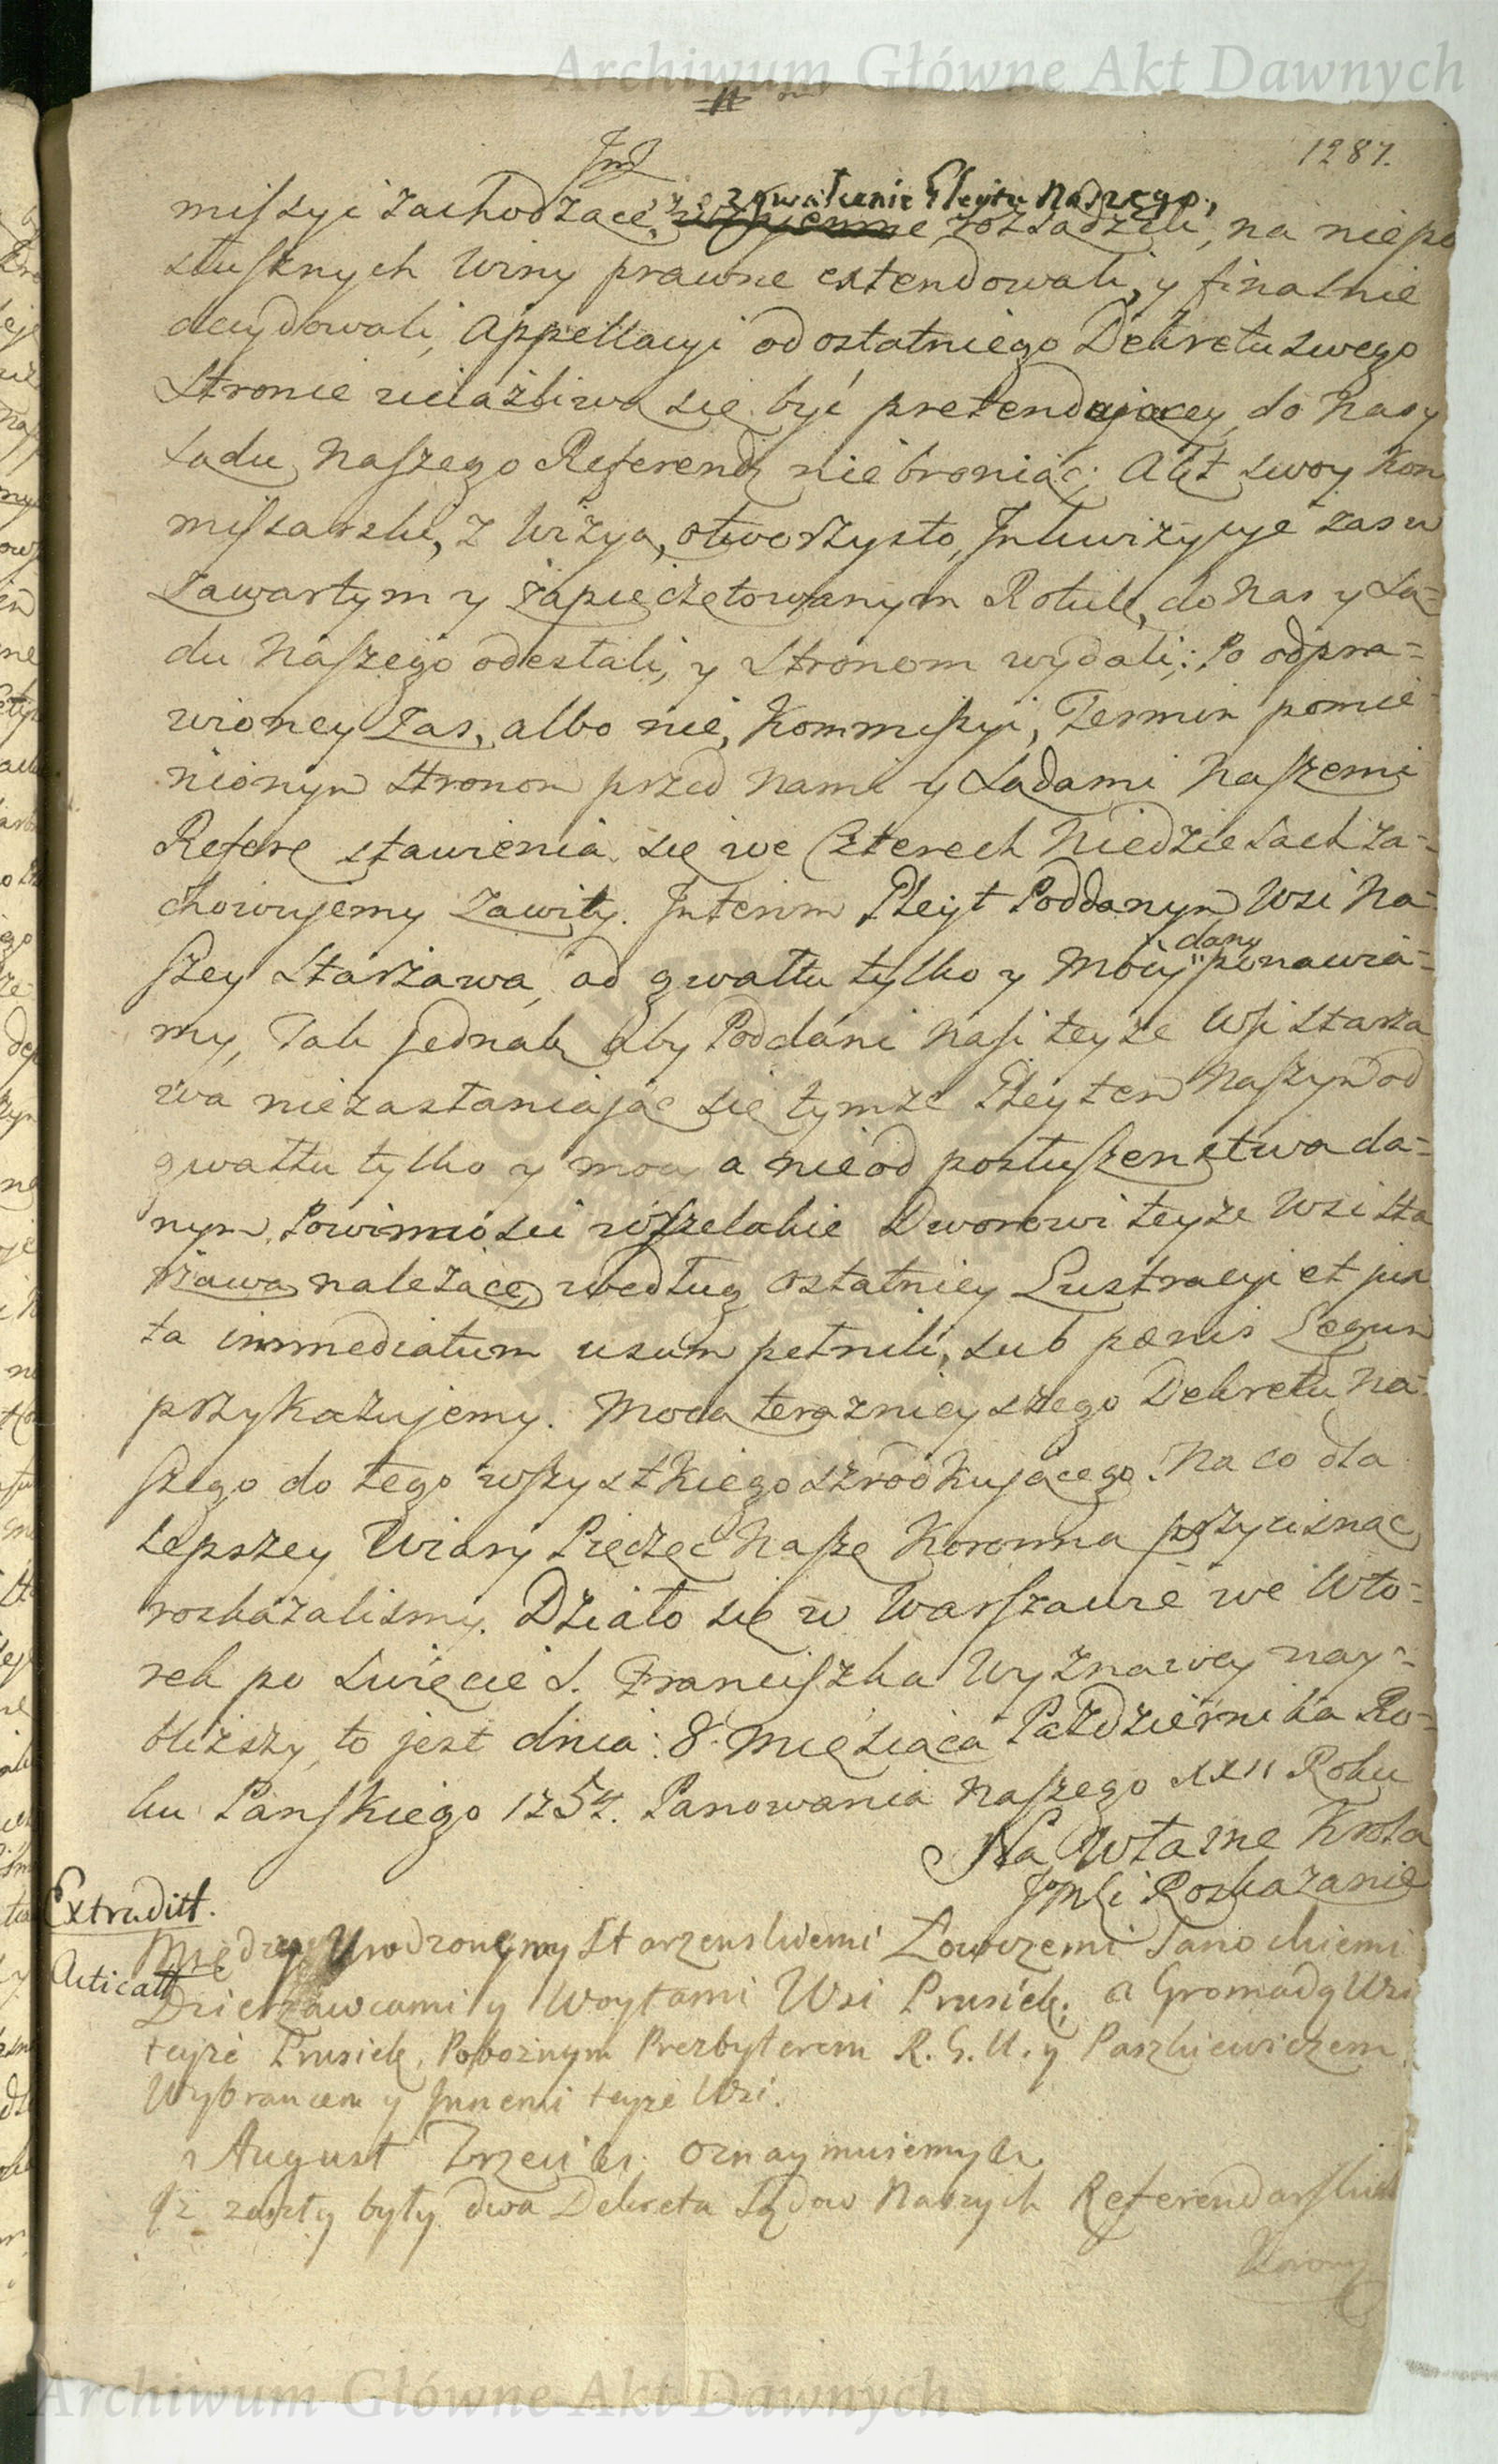 Archiwum Główne Akt Dawnych
1287.
Imż
zgwałcenie Gleytu Naszego,
missyi zachodzące, rozsądzili, na niepo
słusznych Winy prawne extendowali, y finalnie
decydowali, Appellacyi od ostatniego Dekretu swego
Stronie uciążliwą się być pretenduiącey, do Nas y
Sądu Naszego Referend. nie broniąc; Akt swoy Kom
missarski, z Wizyą, otworzysto, Inkwizycye zas w
zawartym y zapieczętowanym Rotule, do Nas y Są=
du Naszego odesłali, y Stronom wydali; Po odpra=
wioney zas, albo nie, Kommissyi, Termin pomie=
nionym Stronom przed Nami y Sądami Naszemi
Refere stawienia się we Czterech Niedzielach za=
chowujemy zawity. Interim Gleyt Poddanym Wsi Na=
dany
szey Starzawa, od gwałtu tylko y Mocy ponawia=
my, Tak jednak aby Poddani Nasi teyże Wsi Starza
wa niezasłaniając się tymże Gleytem Naszym od
gwałtu tylko y mocy a nie od posłuszenstwa da=
nym, Powinności wszelakie Dworowi teyże Wsi Sta
rzawa należące, według ostatniey Lustracyi et jux
ta immediatum usum pełnili, sub pœnis Legum
przykazujemy. Mocą terazniejszego Dekretu Na=
szego do tego wszystkiego szrodkującego. Na co dla
lepszey Wiary Pieczęć Naszę Koronną przycisnąć
roskazaliśmy. Działo się w Warszawie we Wto=
rek po Święcie S. Franciszka Wyznawcy nay=
bliższy, to jest dnia 8 Miesiąca Pazdziernika Ro=
ku Panskiego 1754. Panowania Naszego XXII Roku
Na Własne Krola
Jmści Roskazanie
Extraditt.
Między Urodzonymy Starzenskiemi Łowczemi Sanockiemi
Acticatt
Dzierzawcami y Woytami Wsi Prusiek, a Gromadą Wsi
teyże Prusiek, Pobożnym Prezbyterem R. G. U. y Paszkiewiczem
Wybrancem y Innemi teyże Wsi.
August Trzeci &c. Oznaymuiemy &c.
Iż zaszły były dwa Dekreta Sądow Naszych Referendarskich
Korony
Archiwum Główne Akt Dawnych